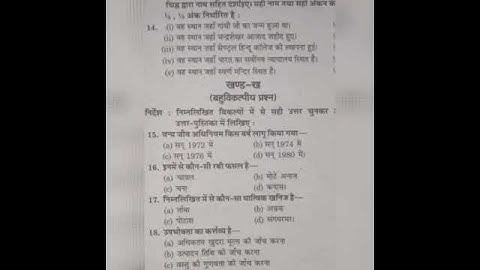 चिह्न द्वारा नाम सहित दर्शाइए। सही नाम तथा सही अंकन के
½, ½ अंक निर्धारित है :
14. (i) वह स्थान जहाँ गांधी जी का जन्म हुआ था।
(ii) वह स्थान जहाँ चन्द्रशेखर आजाद शहीद हुए।
(iii) वह स्थान जहाँ सेण्ट्रल हिन्दू कॉलेज की स्थापना हुई।
(iv) वह स्थान जहाँ भारत का सर्वोच्च न्यायालय स्थित है।
(v) वह स्थान जहाँ स्वर्ण मन्दिर स्थित है।
खण्ड-ख
(बहुविकल्पीय प्रश्न)
निर्देश : निम्नलिखित विकल्पों में से सही उत्तर चुनकर
उत्तर-पुस्तिका में लिखिए :
15. वन्य जीव अधिनियम किस वर्ष लागू किया गया—
(a) सन् 1972 में (b) सन् 1974 में
(c) सन् 1976 में (d) सन् 1980 में।
16. इनमें से कौन-सी रबी फसल है—
(a) चावल (b) मोटे अनाज
(c) चना (d) कपास।
17. निम्नलिखित में से कौन-सा धात्विक खनिज है—
(a) ताँबा (b) अभ्रक
(c) पोटाश (d) संगमरमर।
18. उपभोक्ता का कर्त्तव्य है—
(a) अधिकतम खुदरा मूल्य की जाँच करना
(b) उत्पादन तिथि की जाँच करना
(c) वस्तु की गुणवत्ता की जाँच करना